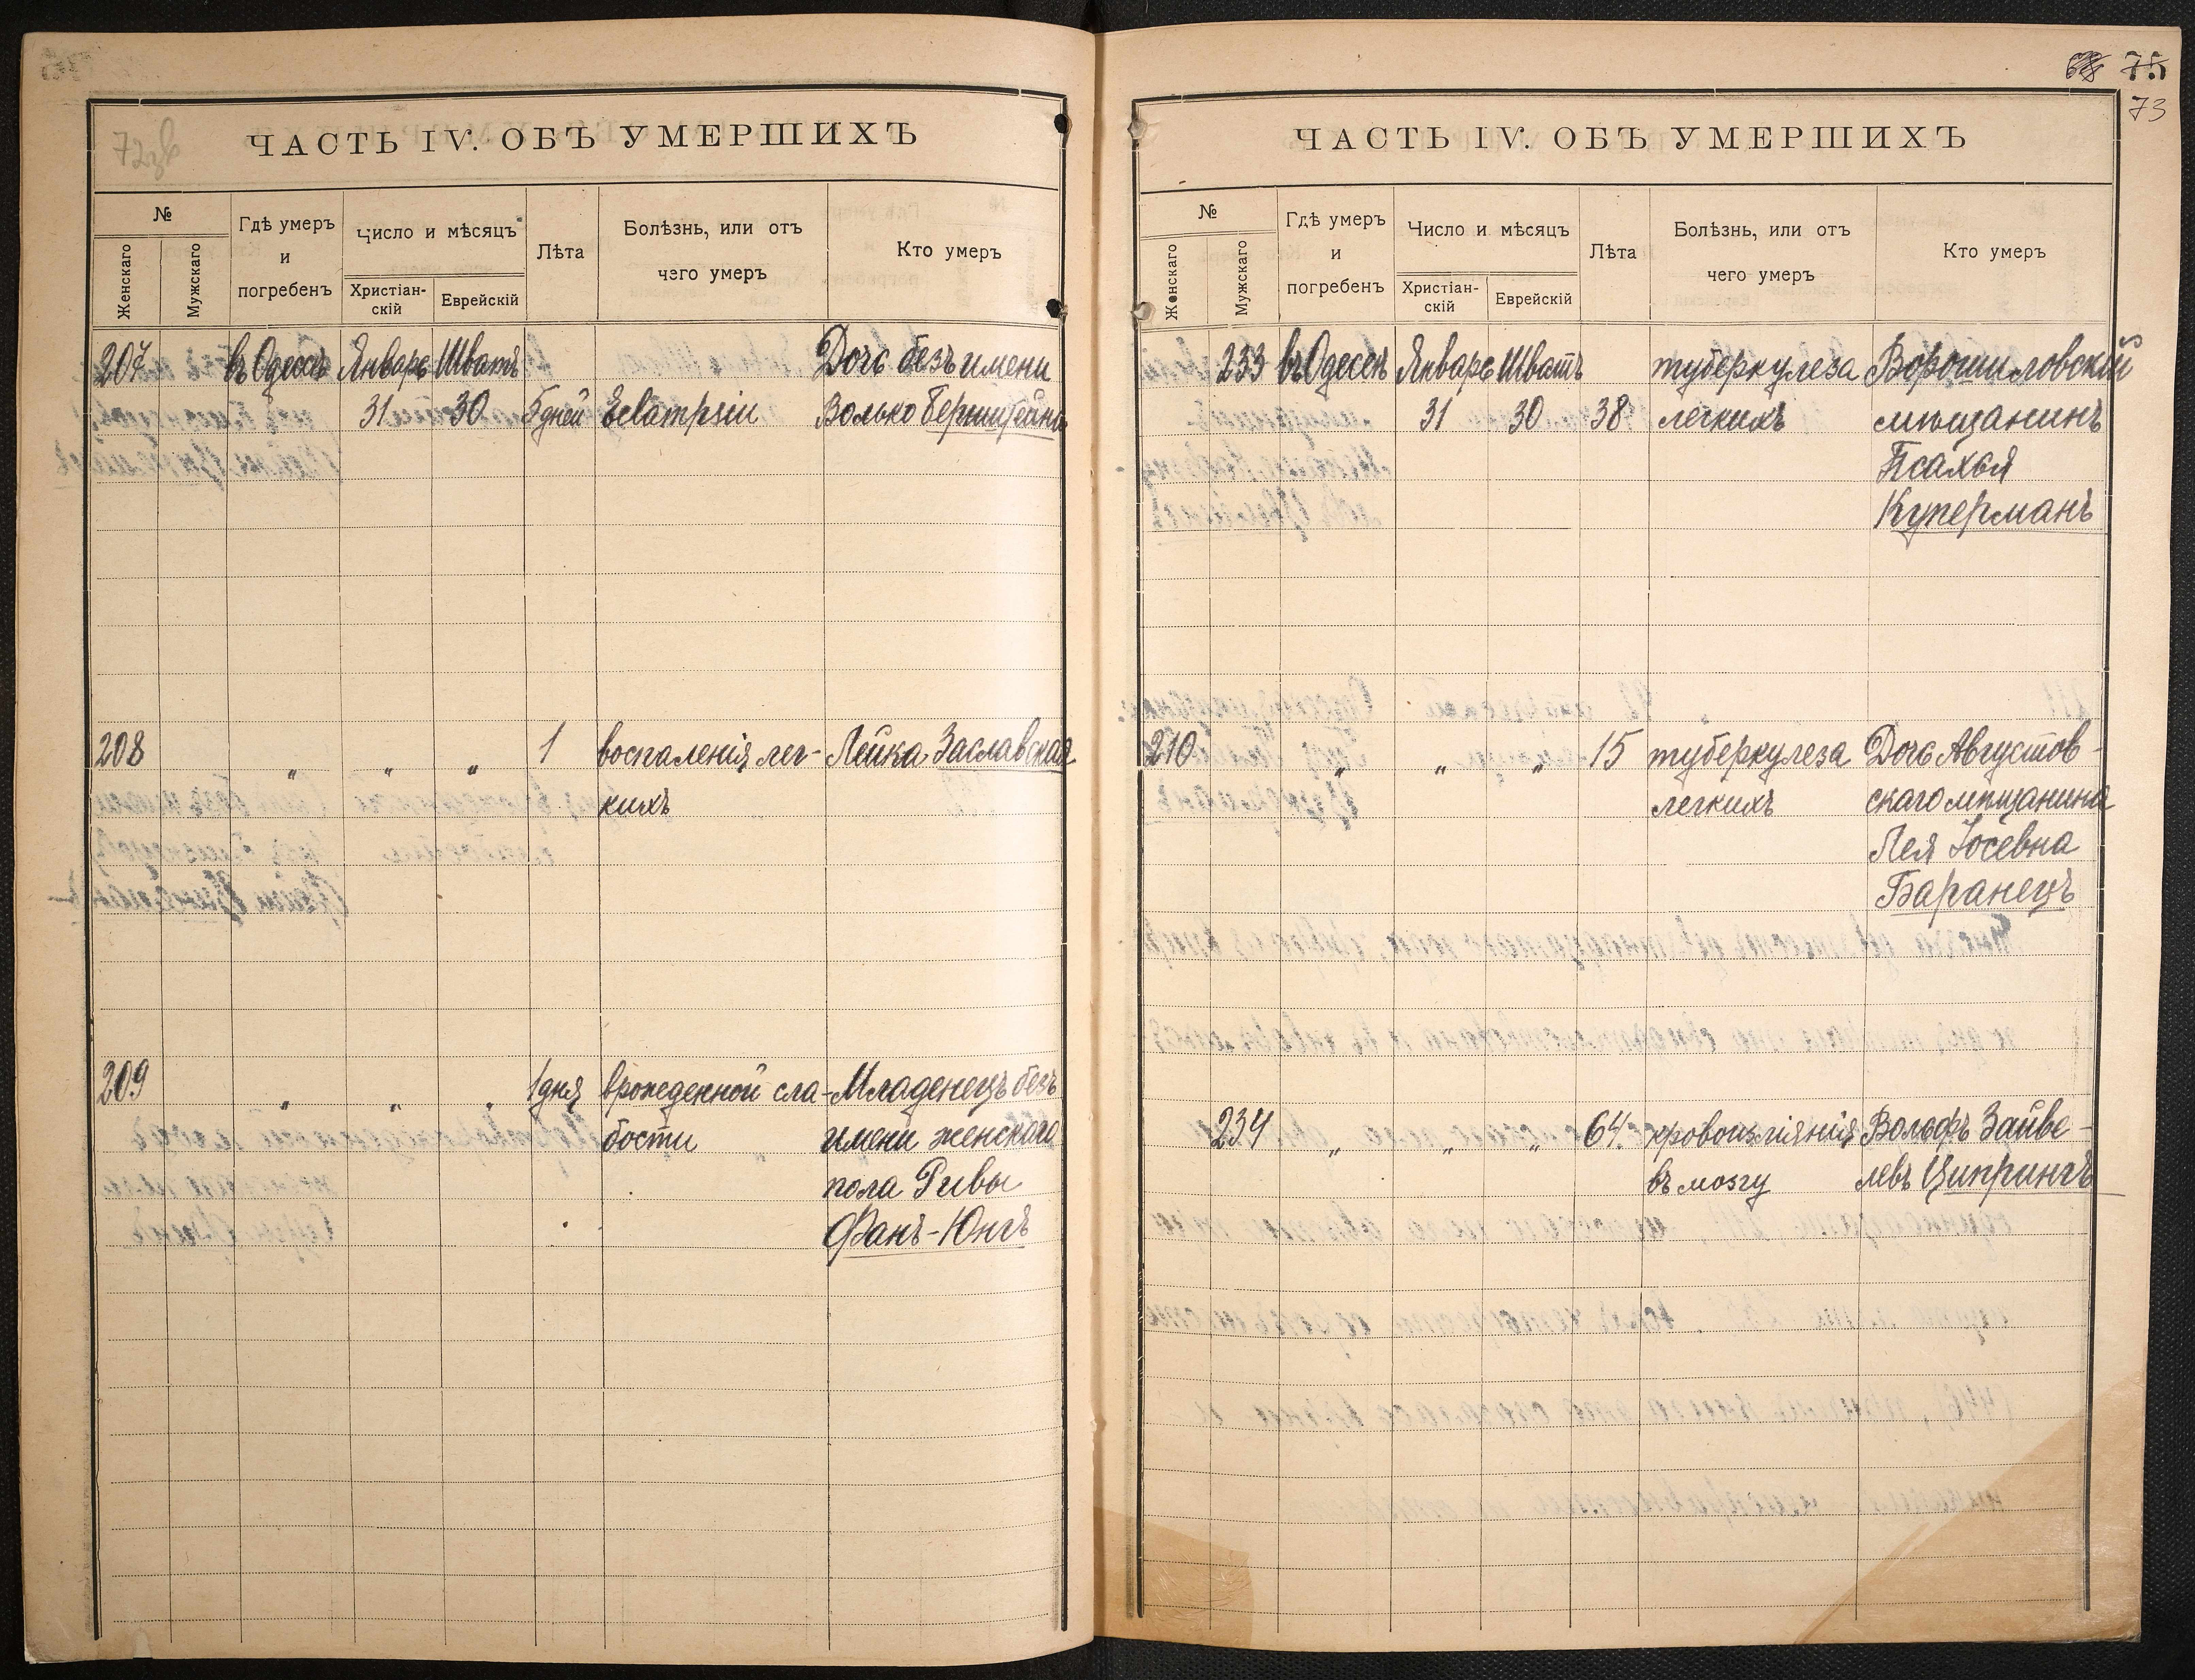 ЧАСТЬ IV. ОБЪ УМЕРШИХЪ
№
Женскаго
Мужскаго
Гдѣ умеръ
и
погребенъ
Число и мѣсяцъ
Христіан-
скій
Еврейскій
Лѣта
Болѣзнь, или отъ
чего умеръ
Кто умеръ
207 въ Одессѣ Январь Шватъ Дочь безъ имени
31 30 5 дней Eclampsiu Волько Бернштейна
208 „ „ „ 1 воспаленія лег- Лейка Заславская
кихъ
209 „ „ „ 1 дня врожденной сла- Младенецъ безъ
бости имени женскаго
пола Ривы
Фанъ-Юнгъ
75
73
ЧАСТЬ IV. ОБЪ УМЕРШИХЪ
№
Женскаго
Мужскаго
Гдѣ умеръ
и
погребенъ
Число и мѣсяцъ
Христіан-
скій
Еврейскій
Лѣта
Болѣзнь, или отъ
чего умеръ
Кто умеръ
233 въ Одессѣ Январь Шватъ туберкулеза Ворошиловскій
31 30 38 легкихъ мѣщанинъ
Псахья
Куперманъ
210 „ „ „ 15 туберкулеза Дочь Августов-
легкихъ скаго мѣщанина
Лея Іосевна
Баранецъ
234 „ „ „ 64 кровоизліянія Вольфъ Зайве-
въ мозгу левъ Ципрингъ